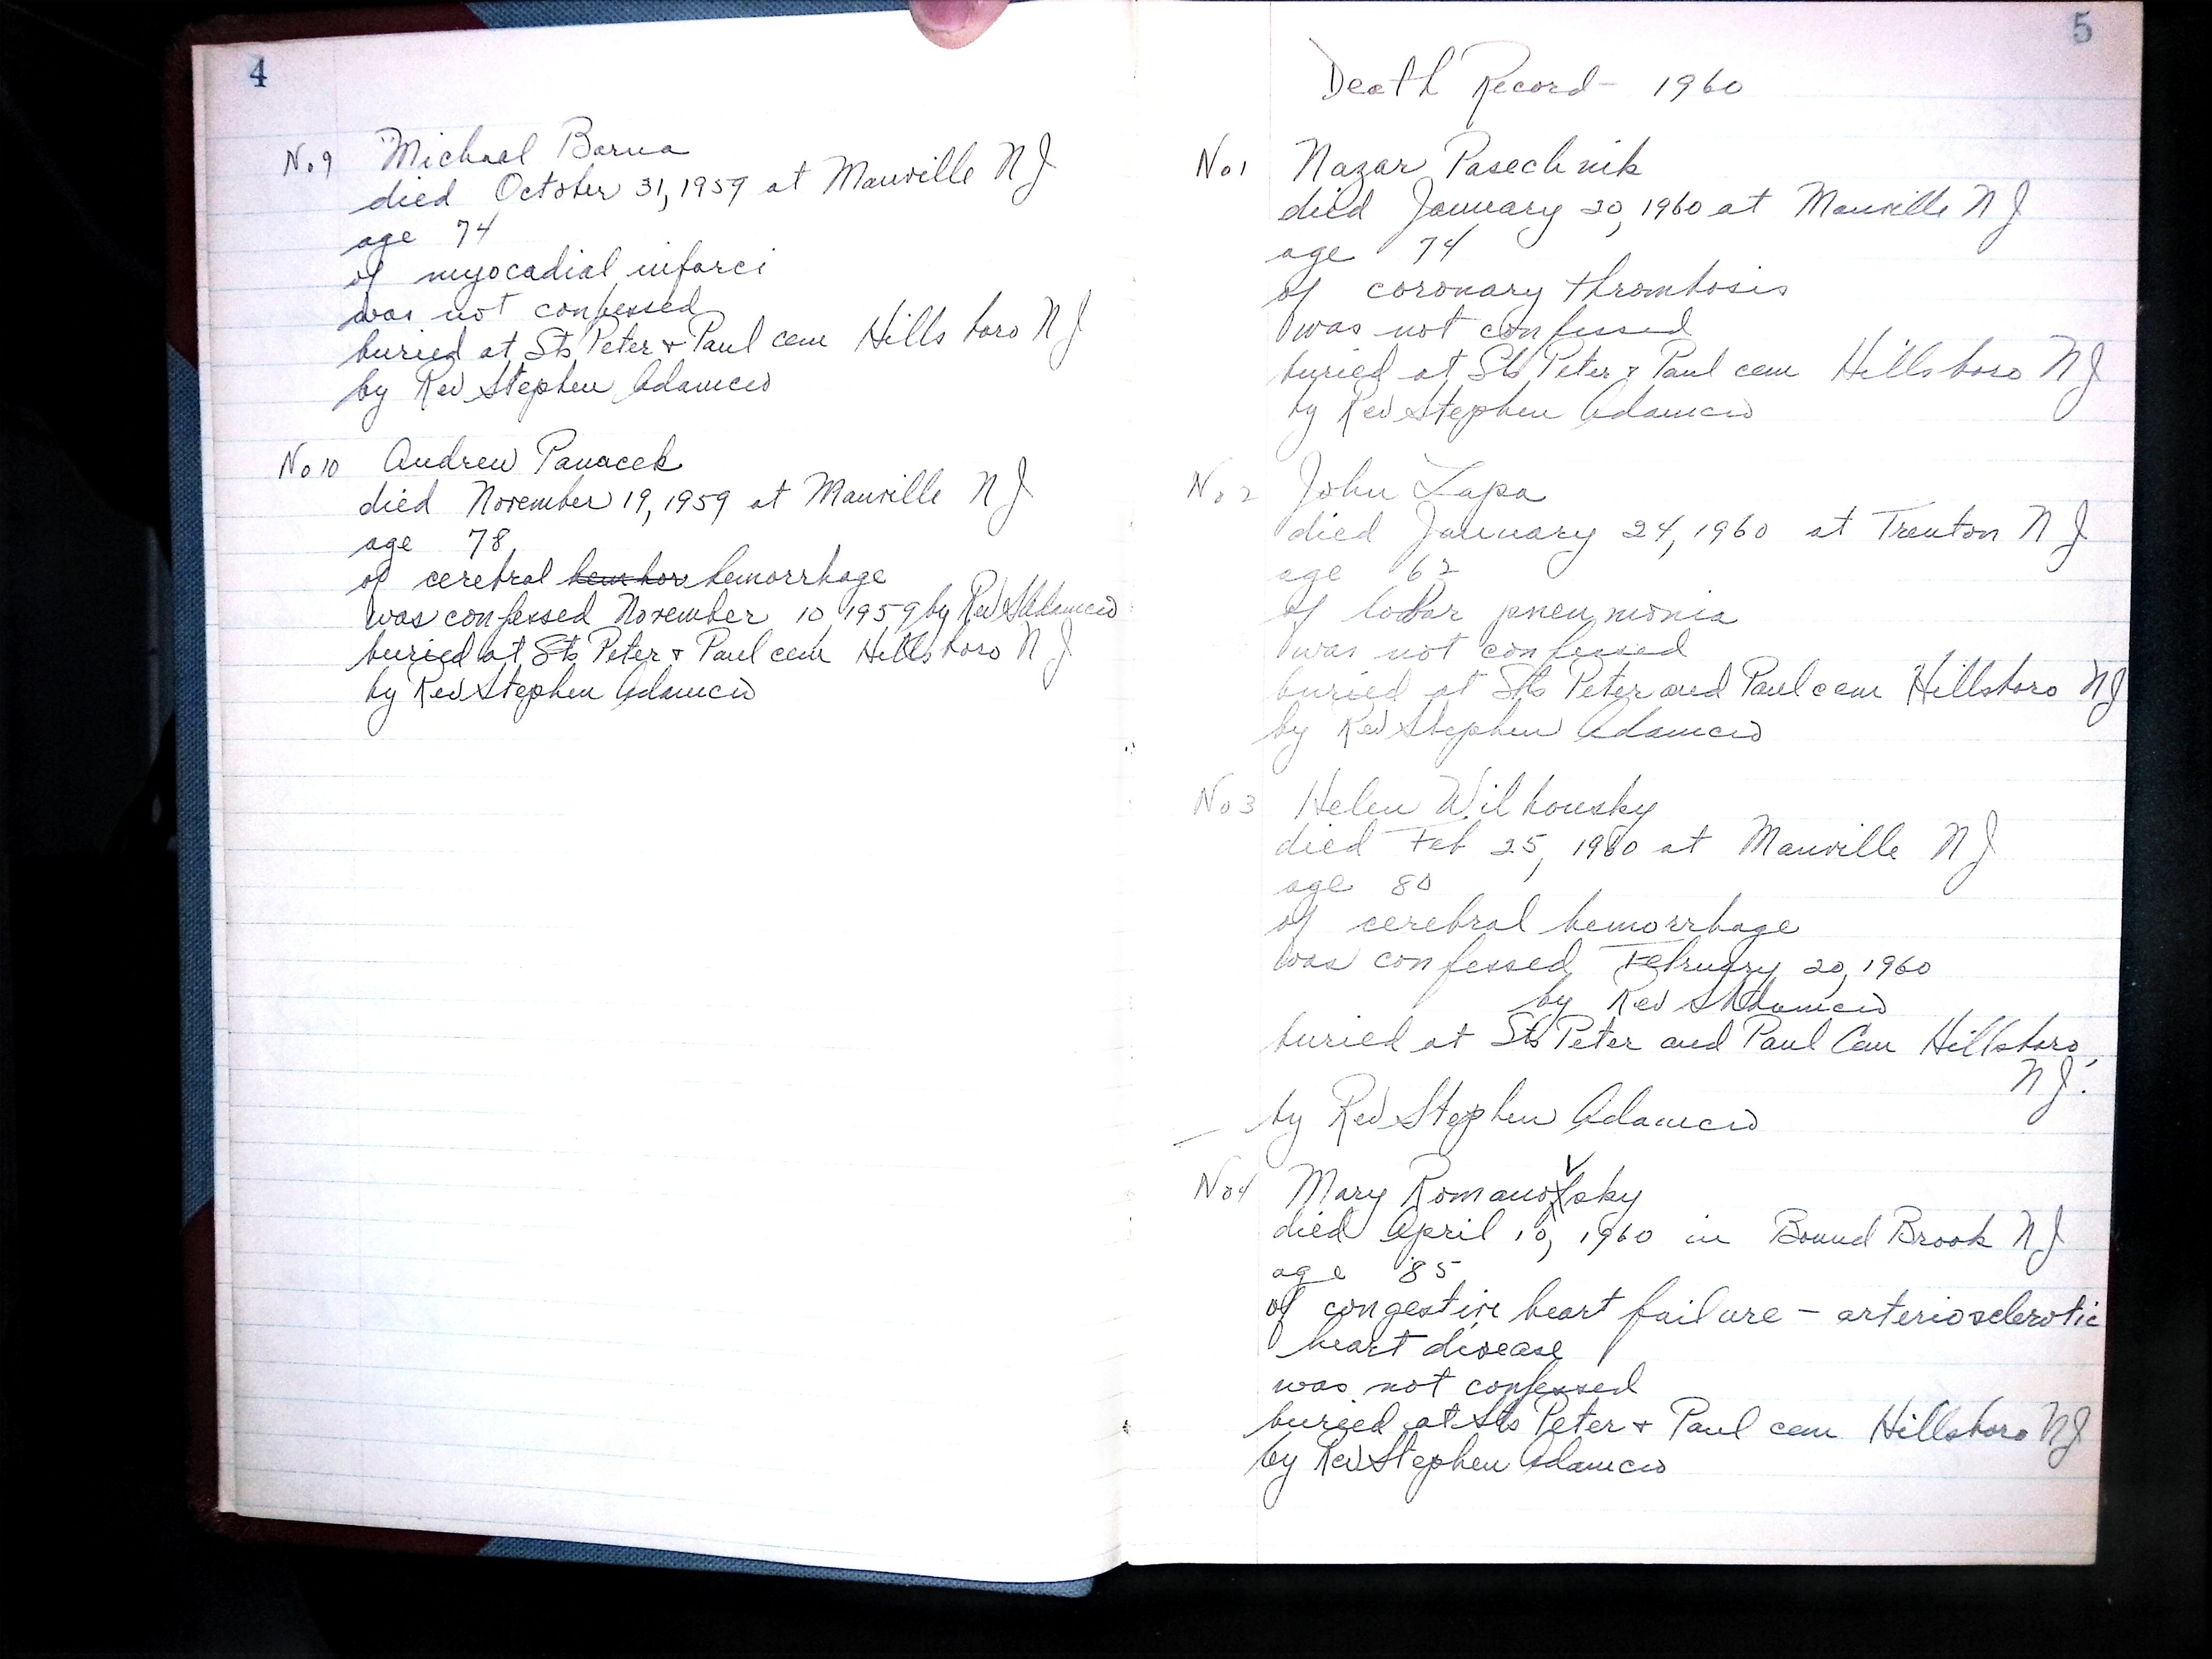 4
No 9 Michael Barna
died October 31, 1959 at Manville N J
age 74
of myocadial infarci
was not confessed
buried at Sts Peter + Paul cem Hillsboro N J
by Rev Stephen Adamcio
No 10 Andrew Panacek
died November 19, 1959 at Manville N J
age 78
of cerebral hemhor hemorrhage
was confessed November 10 1959 by Rev S Adamcio
buried at Sts Peter + Paul cem Hillsboro N J
by Rev Stephen Adamcio
5
Death Record - 1960
No 1 Nazar Pasechnik
died January 20, 1960 at Manville N J
age 74
of coronary thrombosis
was not confessed
buried at Sts Peter + Paul cem Hillsboro N J
by Rev Stephen Adamcio
No 2 John Lapa
died January 24, 1960 at Trenton N J
age 62
of lobar pneumonia
was not confessed
buried at Sts Peter and Paul cem Hillsboro N J
by Rev Stephen Adamcio
No 3 Helen Wilhousky
died Feb 25, 1960 at Manville N J
age 80
of cerebral hemorrhage
was confessed February 20, 1960
by Rev S Adamcio
buried at Sts Peter and Paul Cem Hillsboro,
N J.
by Rev Stephen Adamcio
No 4 Mary Romanovsky
died April 10, 1960 in Bound Brook N J
age 85
of congestive heart failure - arteriosclerotic
heart disease
was not confessed
buried at Sts Peter + Paul cem Hillsboro N J
by Rev Stephen Adamcio